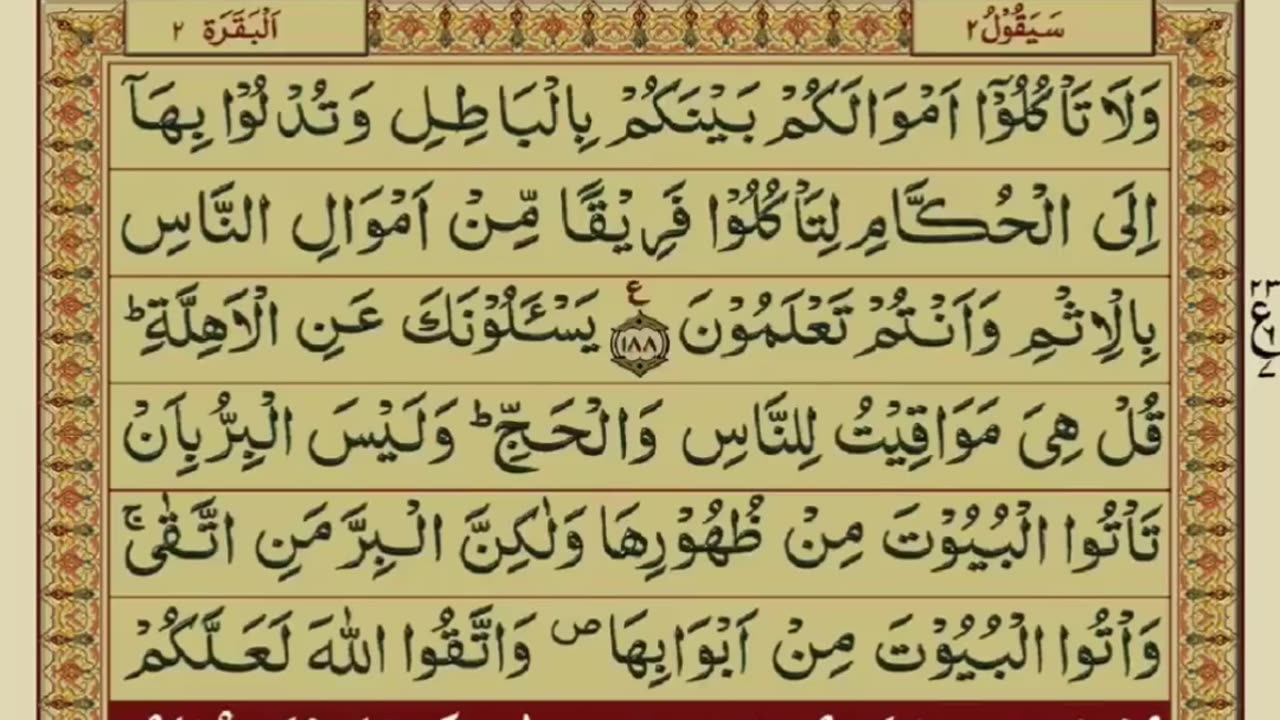 سَيَقُوْلُ ٢
اَلْبَقَرَةِ ٢
وَلَا تَاْكُلُوْٓا اَمْوَالَكُمْ بَيْنَكُمْ بِالْبَاطِلِ وَتُدْلُوْا بِهَآ
اِلَى الْحُكَّامِ لِتَاْكُلُوْا فَرِيْقًا مِّنْ اَمْوَالِ النَّاسِ
بِالْاِثْمِ وَاَنْتُمْ تَعْلَمُوْنَ ع ١٨٨ يَسْـَٔلُوْنَكَ عَنِ الْاَهِلَّةِ ؕ
٢٣
ع
٦
٧
قُلْ هِىَ مَوَاقِيْتُ لِلنَّاسِ وَالْحَجِّ ؕ وَلَيْسَ الْبِرُّ بِاَنْ
تَاْتُوا الْبُيُوْتَ مِنْ ظُهُوْرِهَا وَلٰكِنَّ الْبِرَّ مَنِ اتَّقٰى ۚ
وَاْتُوا الْبُيُوْتَ مِنْ اَبْوَابِهَا ص وَاتَّقُوا اللّٰهَ لَعَلَّكُمْ